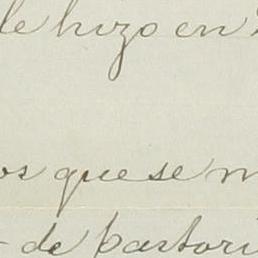 le hizo en
os que se m
de pastori